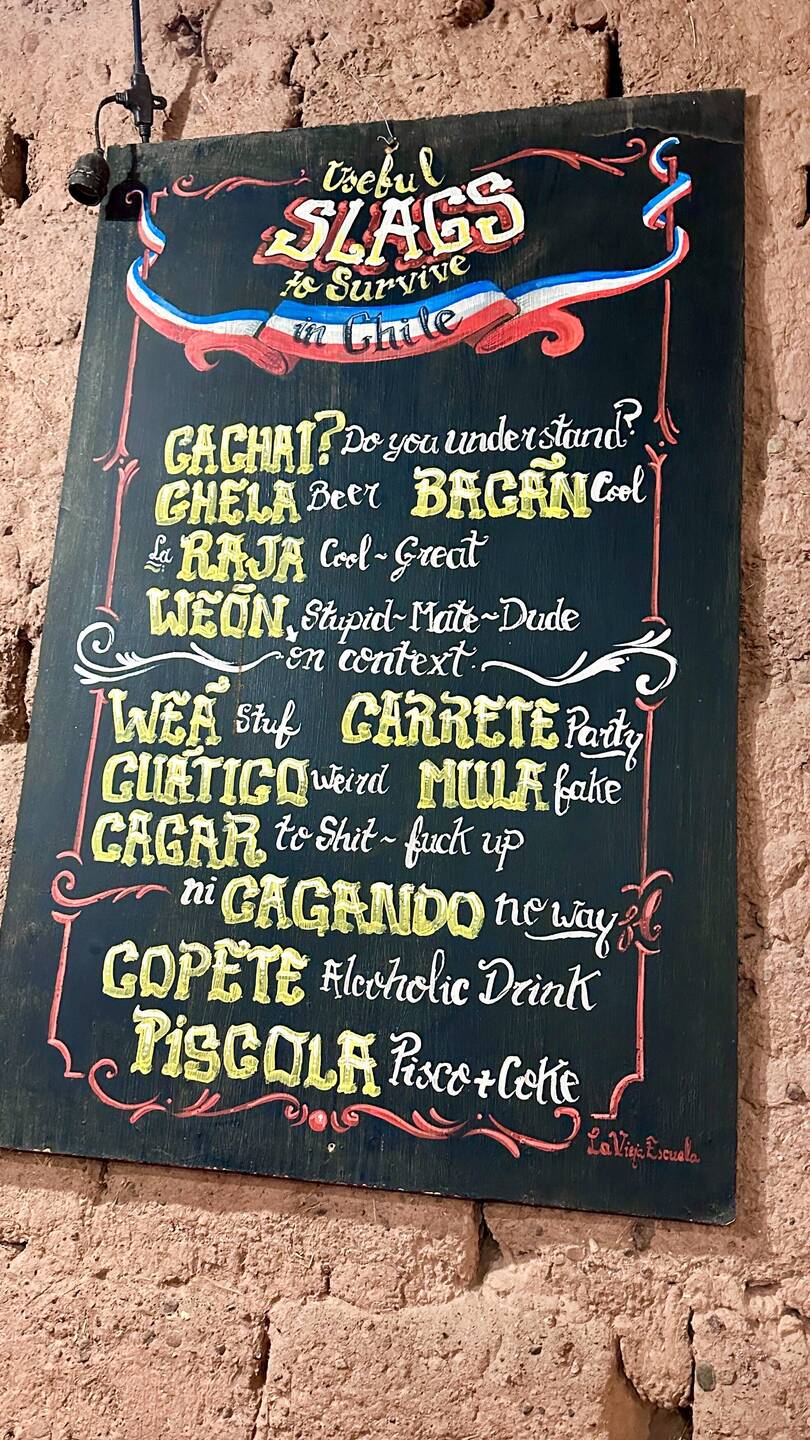 Useful
SLAGS
to Survive
in Chile
CACHAI? Do you understand?
CHELA Beer BACÁN Cool
La RAJA Cool~Great
WEÓN, Stupid~Mate~Dude
on context
WEÁ Stuf CARRETE Party
CUÁTICO weird MULA fake
CAGAR to Shit~ fuck up
ni CAGANDO no way
COPETE Alcoholic Drink
PISCOLA Pisco+Coke
La Vieja Escuela